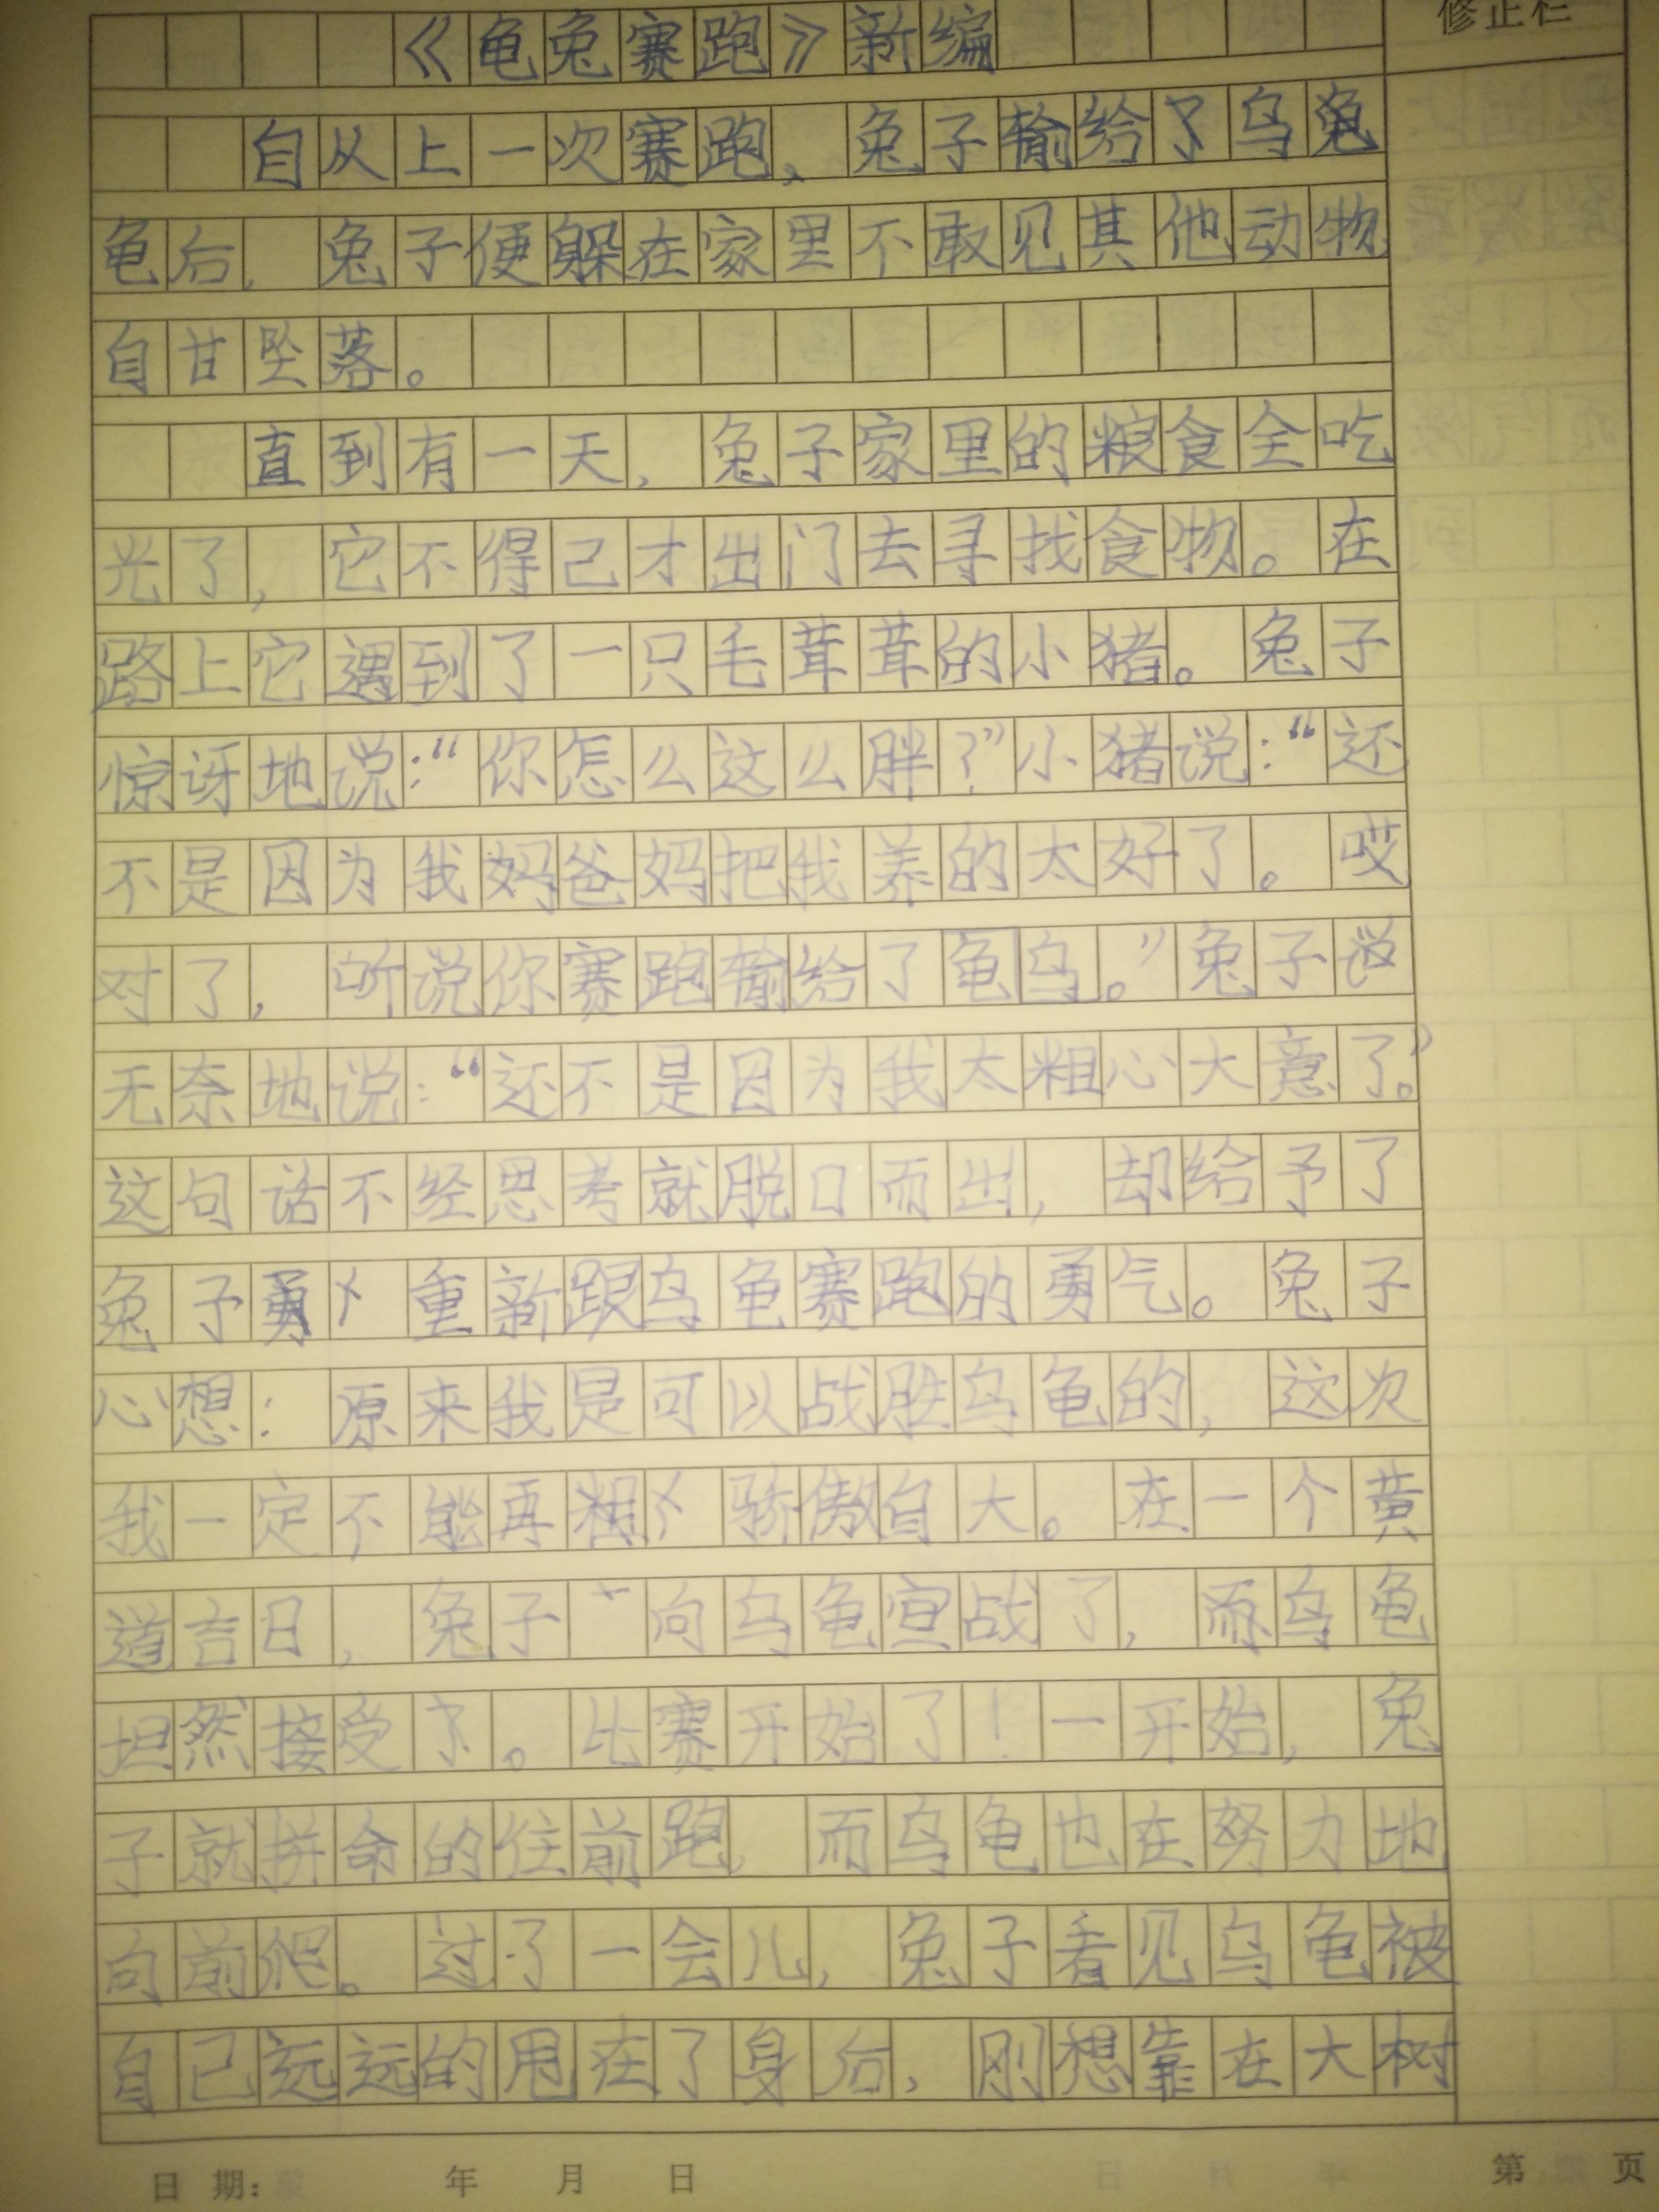 修正栏
《龟兔赛跑》新编
自从上一次赛跑、兔子输给了乌
龟后,兔子便躲在家里不敢见其他动物
自甘坠落。
直到有一天,兔子家里的粮食全吃
光了,它不得已才出门去寻找食物。在
路上它遇到了一只毛茸茸的小猪。兔子
惊讶地说:“你怎么这么胖?”小猪说:“还
不是因为我妈爸妈把我养的太好了。哎
对了,听说你赛跑输给了龟乌。”兔子
无奈地说:“还不是因为我太粗心大意了。”
这句话不经思考就脱口而出,却给予了
兔子重新跟乌龟赛跑的勇气。兔子
心想:原来我是可以战胜乌龟的,这次
我一定不能再骄傲自大。在一个黄
道吉日,兔子向乌龟宣战了,而乌龟
坦然接受了。比赛开始了!一开始,兔
子就拼命的往前跑,而乌龟也在努力地
向前爬。过了一会儿,兔子看见乌龟被
自己远远的甩在了身后,刚想靠在大树
日期: 年 月 日
第 页